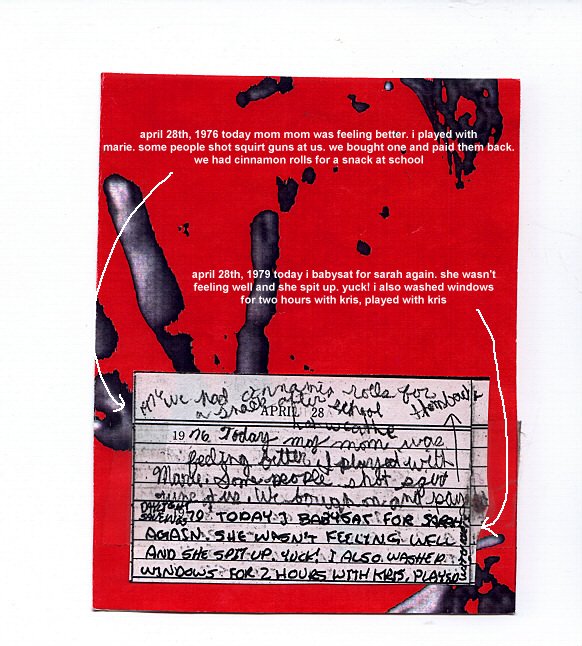 april 28th, 1976 today mom mom was feeling better. i played with
marie. some people shot squirt guns at us. we bought one and paid them back.
we had cinnamon rolls for a snack at school
april 28th, 1979 today i babysat for sarah again. she wasn't
feeling well and she spit up. yuck! i also washed windows
for two hours with kris, played with kris
We had cinnamin rolls for
a snack after school
APRIL 28
1976 Today my mom was
feeling better. I played with
Marie. Some people shot
We
79 TODAY I BABYSAT FOR SARAH
AGAIN. SHE WASN'T FEELING WELL
AND SHE SPIT UP. YUCK! I ALSO WASHED
WINDOWS FOR 2 HOURS WITH KRIS, PLAYED